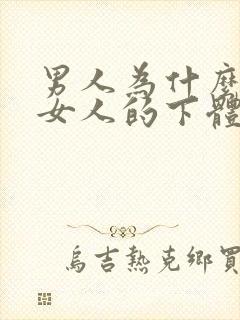 男人為什麼
女人的下體
烏吉熱克鄉買